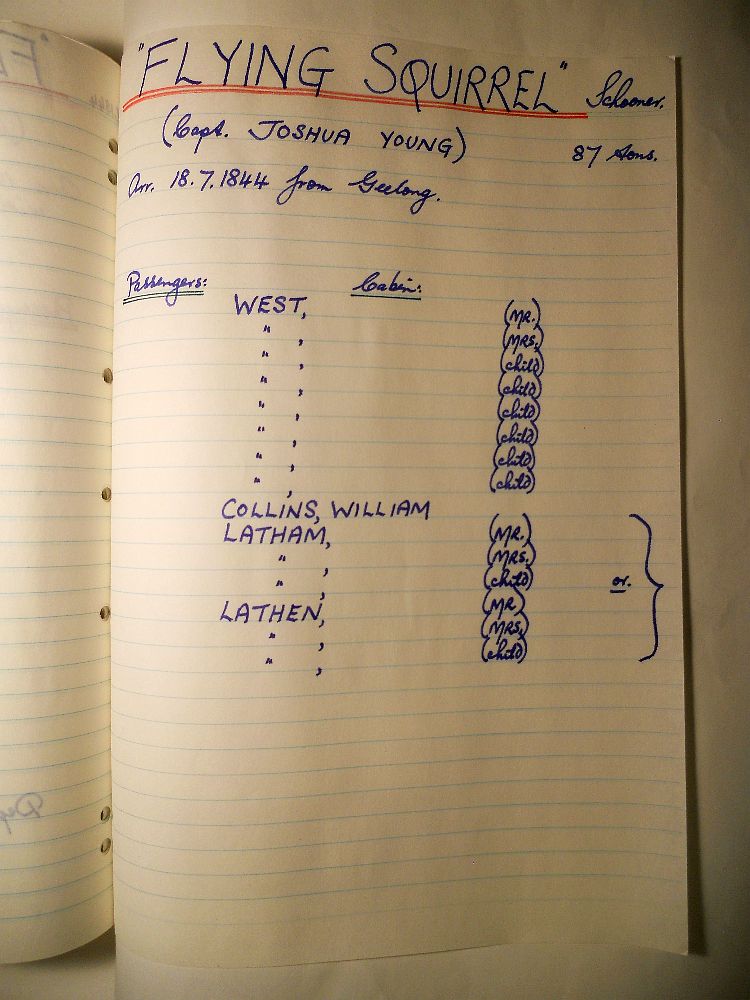 "FLYING SQUIRREL" Schooner.
(Capt. JOSHUA YOUNG) 87 tons.
Arr. 18.7.1844 from Geelong.
Passengers: Cabin:
WEST, (MR.)
" , (MRS.)
" , (child)
" , (child)
" , (child)
" , (child)
" , (child)
" , (child)
COLLINS, WILLIAM
LATHAM, (MR.)
" , (MRS.)
" , (child) or.
LATHEN, (MR)
" , (MRS,)
" , (child)